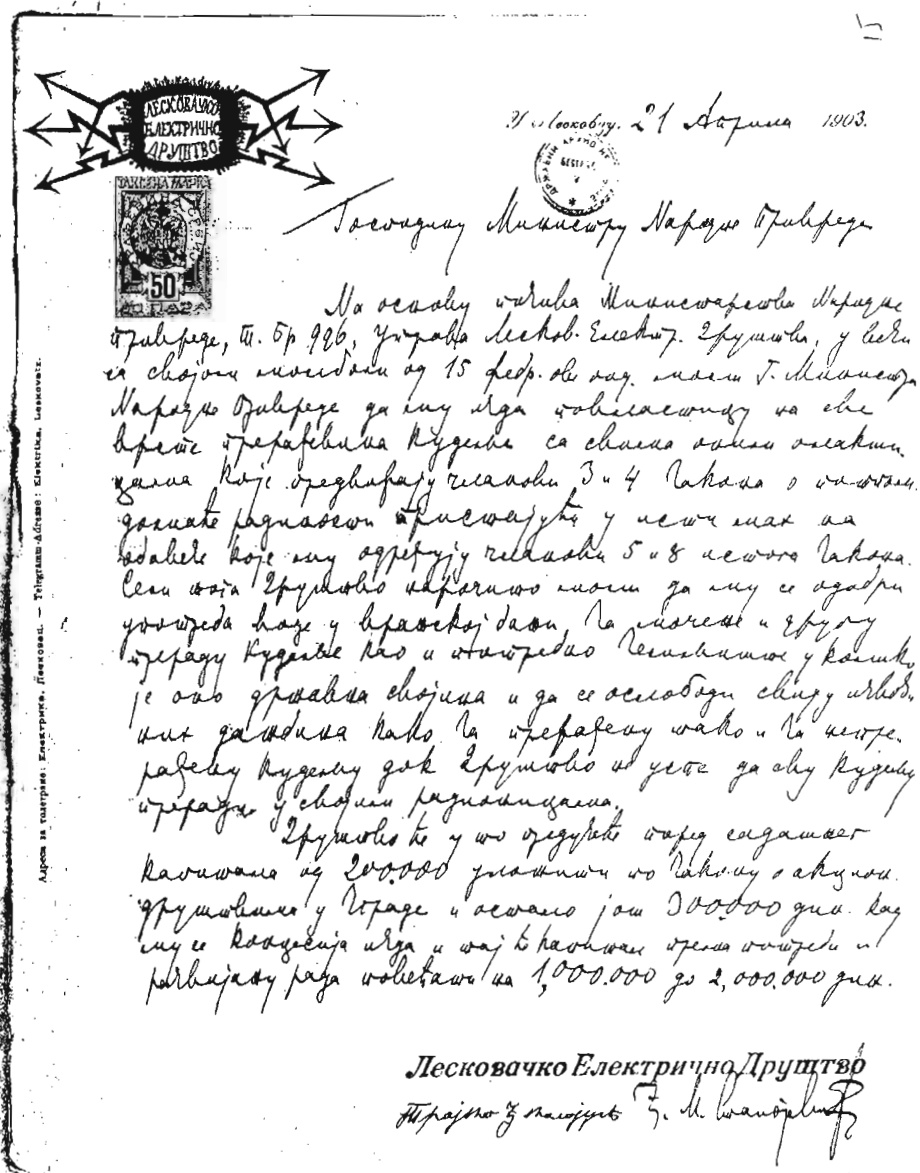 ЛЕСКОВАЧКО
ЕЛЕКТРИЧНО
ДРУШТВО
ТАКСЕНА МАРКА
50
ПАРА
У Лесковцу, 21 Априла 1903.
Господину Министру Народне Привреде
На основу позива Министарства Народне
Привреде, Т. Бр 996, Управа Лесков. Електр. Друштва, у вези
са својом молбом од 15 фебр. ове год. моли Г. Министра
Народне Привреде да му изда повластицу на све
врсте прерађевина кудеље са свима оним олакши
цама које предвиђају чланови 3 и 4 Закона о
домаће радиности пристајући у исти мах на
обавезе које му одређују чланови 5 и 8 истога Закона.
Сем тога Друштво нарочито моли да му се одобри
употреба воде у врањској бањи за мочење и другу
прераду кудеље као и потребно земљиште у колико
је оно државна својина и да се ослободи свију извозн
них дажбина како за прерађену тако и за непре
рађену кудељу док Друштво не успе да сву кудељу
преради у својим радионицама.
Друштво ће у то предузеће поред садашњег
капитала од 200.000 уложити по Закону о акцион.
друштвима у зграде и остало још 300.000 дин. кад
му се концесија изда и тај ће капитал према потреби и
развијању рада повећати на 1,000.000 до 2,000.000 дин.
Лесковачко Електрично Друштво
Трајко
Адреса за телеграме: Електрика, Лесковац. — Telegramm-Adresse: Elektrika, Leskovatz.